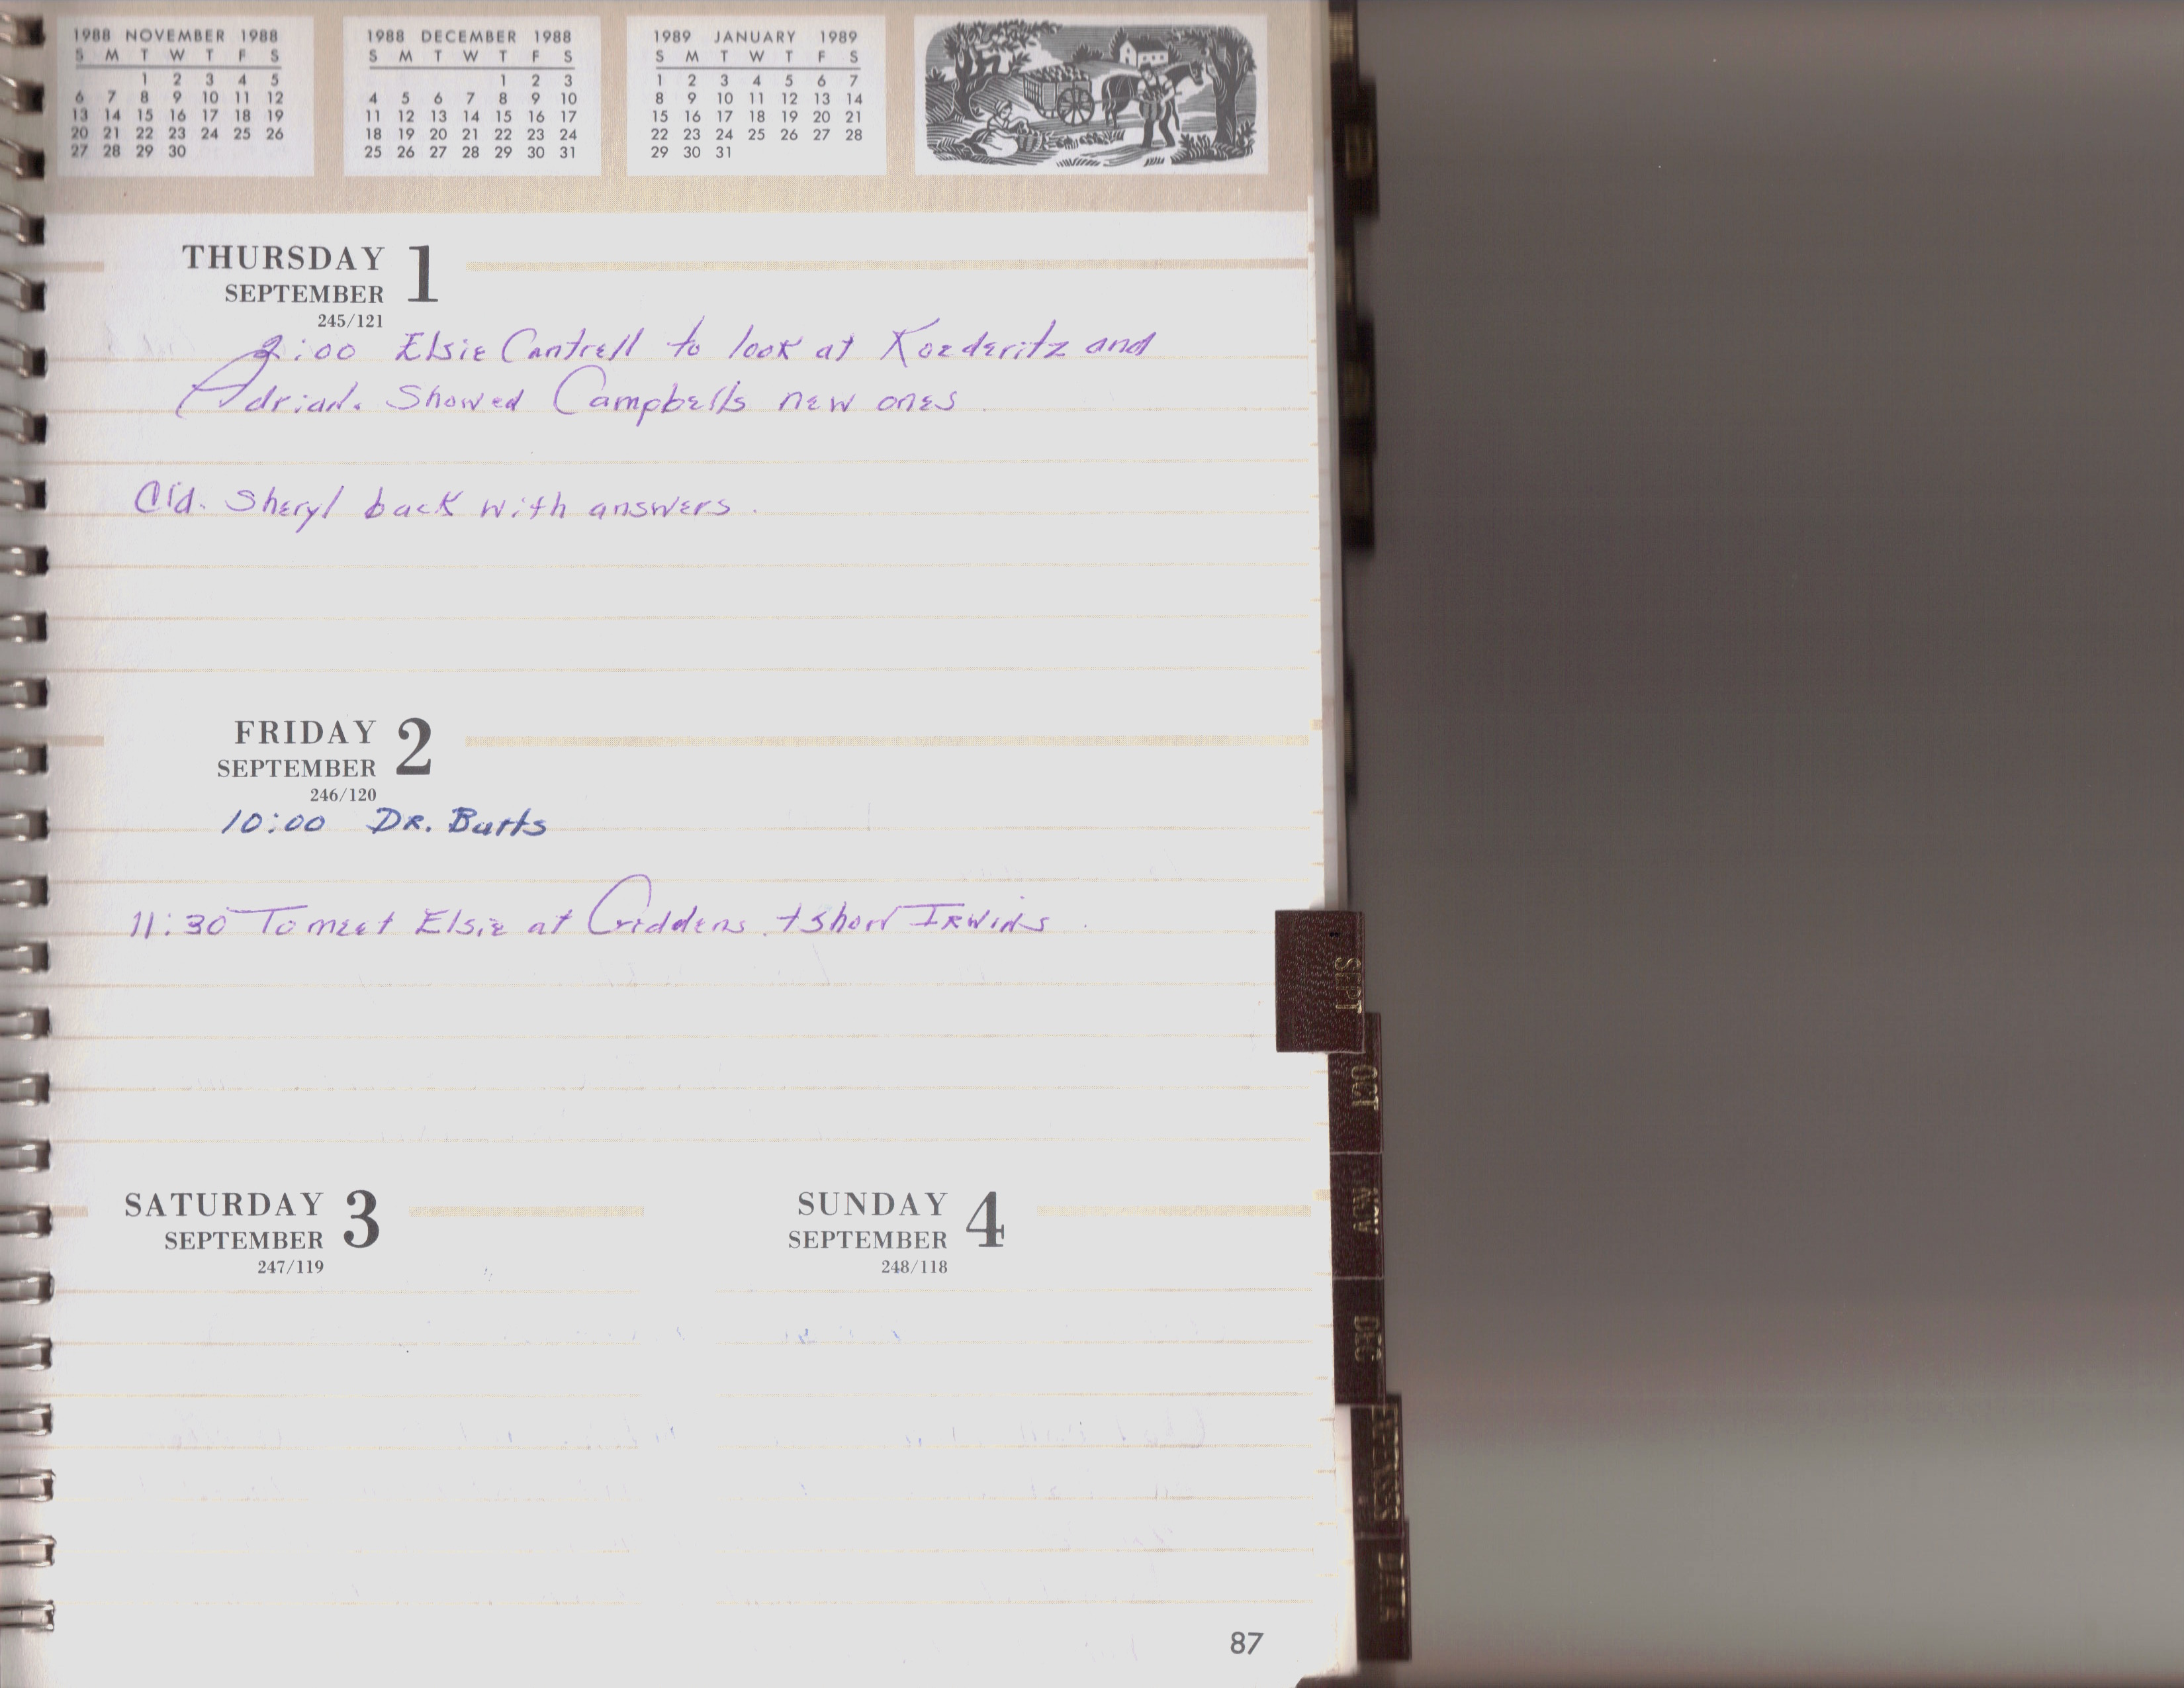 1988 NOVEMBER 1988
S M T W T F S
1 2 3 4 5
6 7 8 9 10 11 12
13 14 15 16 17 18 19
20 21 22 23 24 25 26
27 28 29 30
1988 DECEMBER 1988
S M T W T F S
1 2 3
4 5 6 7 8 9 10
11 12 13 14 15 16 17
18 19 20 21 22 23 24
25 26 27 28 29 30 31
1989 JANUARY 1989
S M T W T F S
1 2 3 4 5 6 7
8 9 10 11 12 13 14
15 16 17 18 19 20 21
22 23 24 25 26 27 28
29 30 31
THURSDAY 1
SEPTEMBER
245/121
2:00 Elsie Cantrell to look at Koederitz and
Adrian. Showed Campbells new ones
Cld. Sheryl back with answers.
FRIDAY 2
SEPTEMBER
246/120
10:00 DR. Butts
11:30 To meet Elsie at Giddens + show Irwins
SATURDAY 3
SEPTEMBER
247/119
SUNDAY 4
SEPTEMBER
248/118
SEPT
OCT
NOV
DEC
EXPENSES
DATA
87